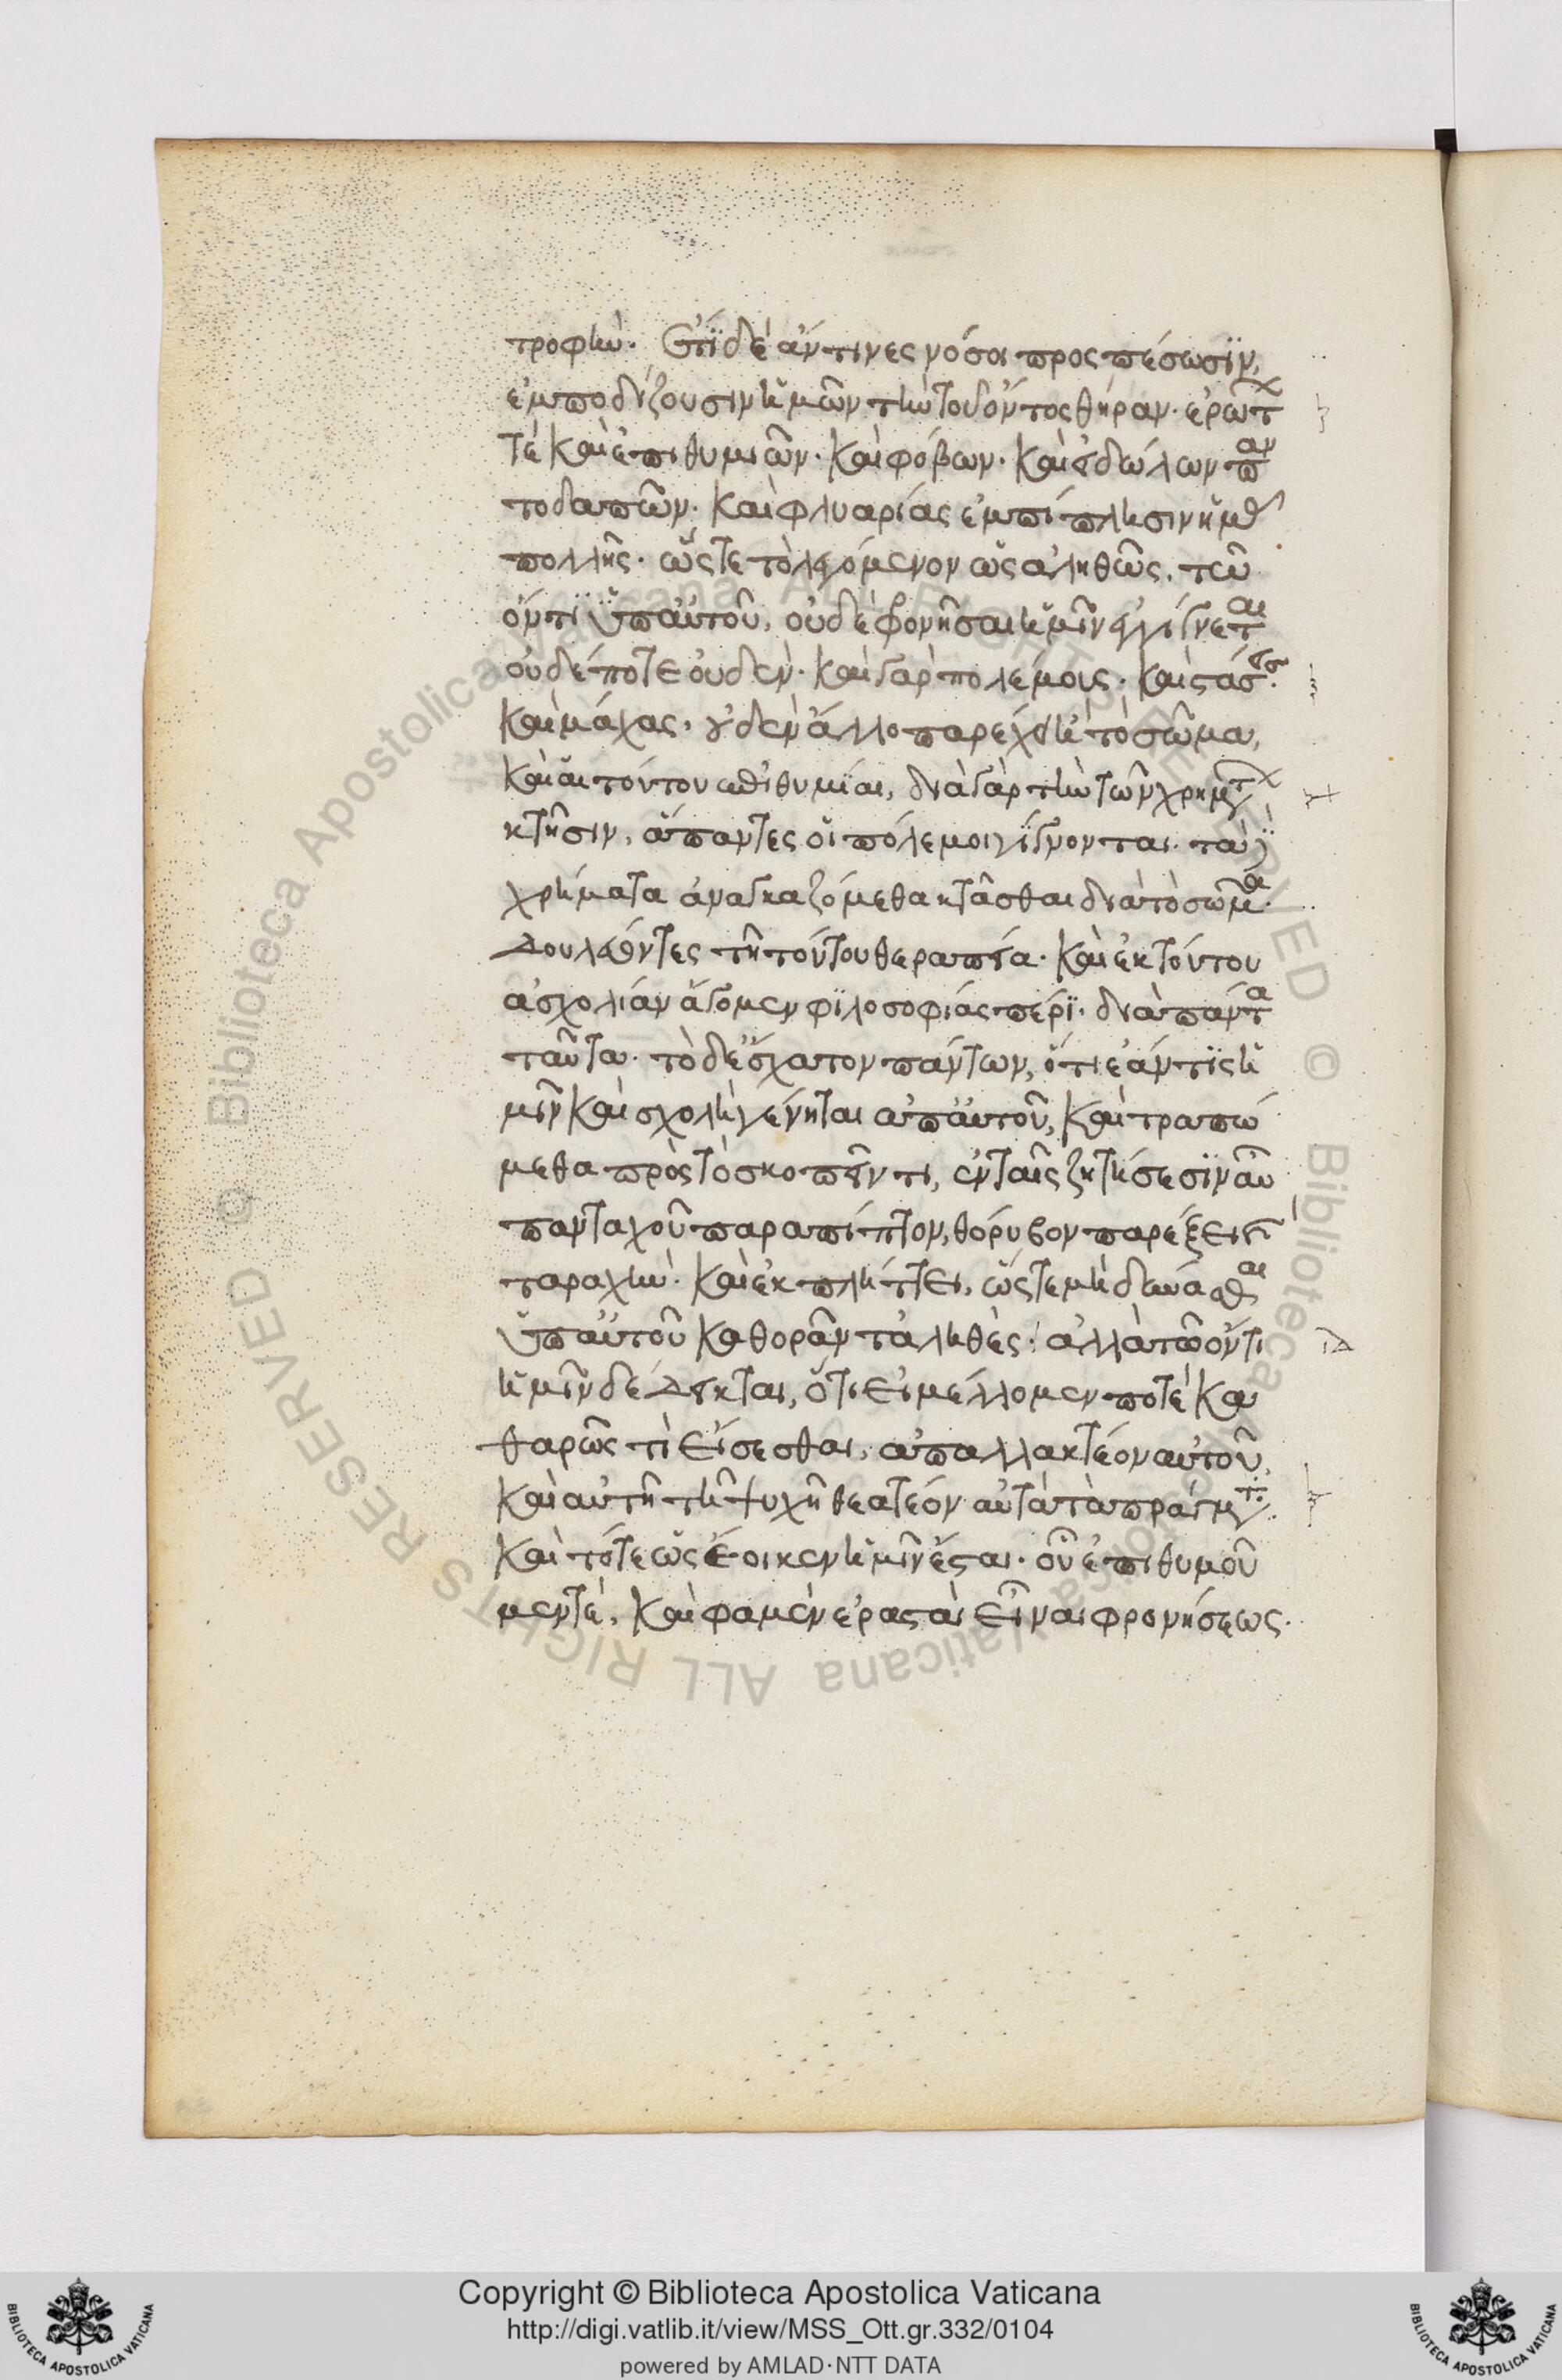 τροφὴν. ἔτι δὲ ἄν τινες νόσοι προσπέσωσιν,
ἐμποδίζουσιν ἡμῶν τὴν τοῦ ὄντος θήραν. ἐρώτ
τὲ καὶ ἐπιθυμιῶν. καὶ φόβων. καὶ εἰδώλων παν
τοδαπῶν. καὶ φλυαρίας ἐμπίπλησιν ἡμᾶς
πολλῆς. ὥστε τὸ λεγόμενον ὡς ἀληθῶς. τῶ
ὄντι ὑπ' αὐτοῦ, οὐδὲ φρονῆσαι ἡμῖν ἐγγίγνεται
οὐδέποτε οὐδὲν. καὶ γὰρ πολέμους. καὶ στάσεις.
καὶ μάχας. οὐδὲν ἄλλο παρέχει ἢ τὸ σῶμα,
καὶ αἱ τούτου ἐπιθυμίαι, διὰ γὰρ τὴν τῶν χρημάτων
κτῆσιν, ἅπαντες οἱ πόλεμοι γίγνονται. τὰ δὲ
χρήματα ἀναγκαζόμεθα κτᾶσθαι διὰ τὸ σῶμα.
δουλεύοντες τῆ τούτου θεραπεία. καὶ ἐκ τούτου
ἀσχολίαν ἄγομεν φιλοσοφίας πέρι. διὰ πάντα
ταῦτα. τὸ δ' ἔσχατον πάντων, ὅτι ἐάν τις ἡ
μῖν καὶ σχολὴ γένηται ἀπ' αὐτοῦ, καὶ τραπώ
μεθα πρὸς τὸ σκοπεῖν τι, ἐν ταῖς ζητήσεσιν αὖ
πανταχοῦ παραπίπτον, θόρυβον παρέξει καὶ
ταραχὴν. καὶ ἐκπλήττει, ὥστε μὴ δύνασθαι
ὑπ' αὐτοῦ καθορᾶν τἀληθές. ἀλλὰ τῶ ὄντι
ἡμῖν δέδεικται, ὅτι εἰ μέλλομεν ποτὲ κα
θαρῶς τὶ εἴσεσθαι, ἀπαλλακτέον αὐτοῦ,
καὶ αὐτῆ τῆ ψυχῆ θεατέον αὐτὰ τὰ πράγματα.
καὶ τότε ὡς ἔοικεν ἡμῖν ἔσται. οὗ ἐπιθυμοῦ
μεν τέ, καὶ φαμὲν ἐρασταὶ εἶναι φρονήσεως.
Copyright © Biblioteca Apostolica Vaticana
http://digi.vatlib.it/view/MSS_Ott.gr.332/0104
powered by AMLAD·NTT DATA
© Biblioteca Apostolica Vaticana ALL RIGHTS RESERVED © Biblioteca Apostolica Vaticana ALL RIGHTS RESERVED
BIBLIOTECA APOSTOLICA VATICANA
BIBLIOTECA APOSTOLICA VATICANA